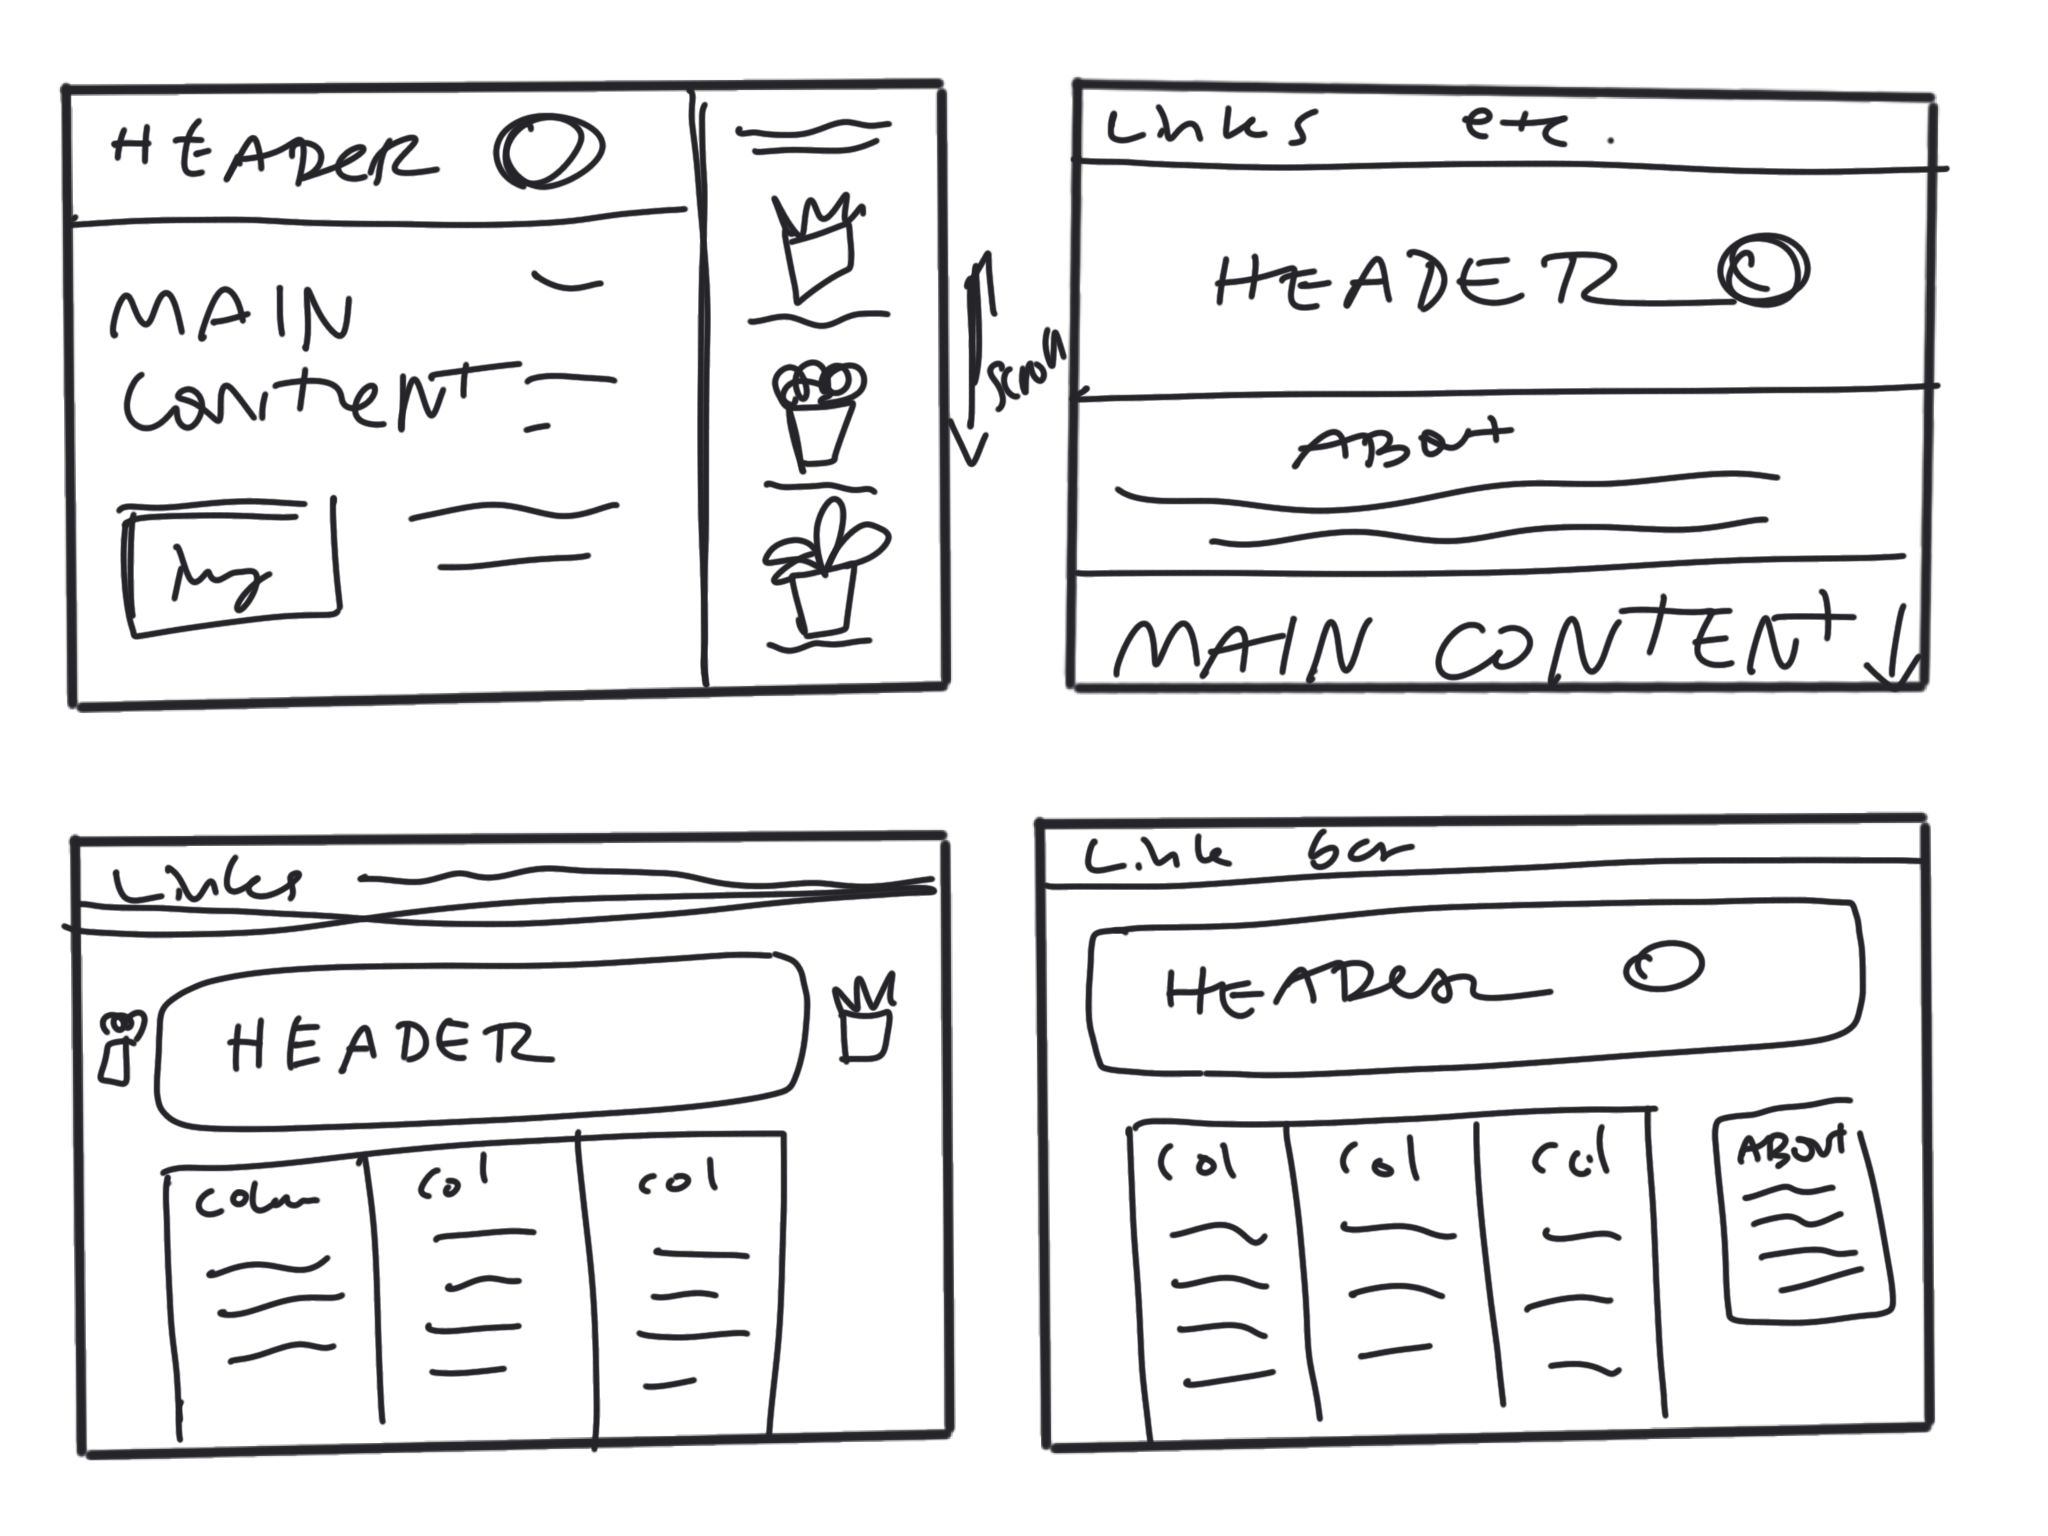 HEADER
MAIN
CONTENT
Img
scroll
Links etc.
HEADER
ABOUT
MAIN CONTENT
Links
HEADER
Column
Col
Col
Link bar
HEADER
Col
Col
Col
ABOUT